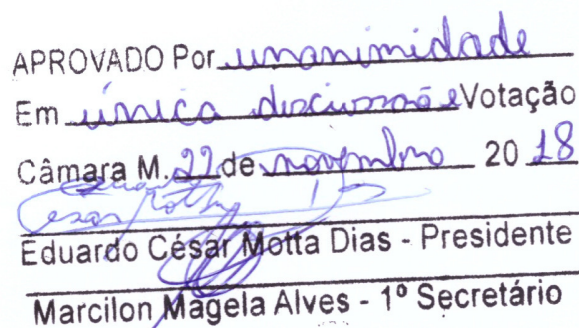 APROVADO Por unanimidade
Em única discussão e Votação
Câmara M. 22 de novembro 20 18
Eduardo César Motta Dias - Presidente
Marcilon Magela Alves - 1º Secretário